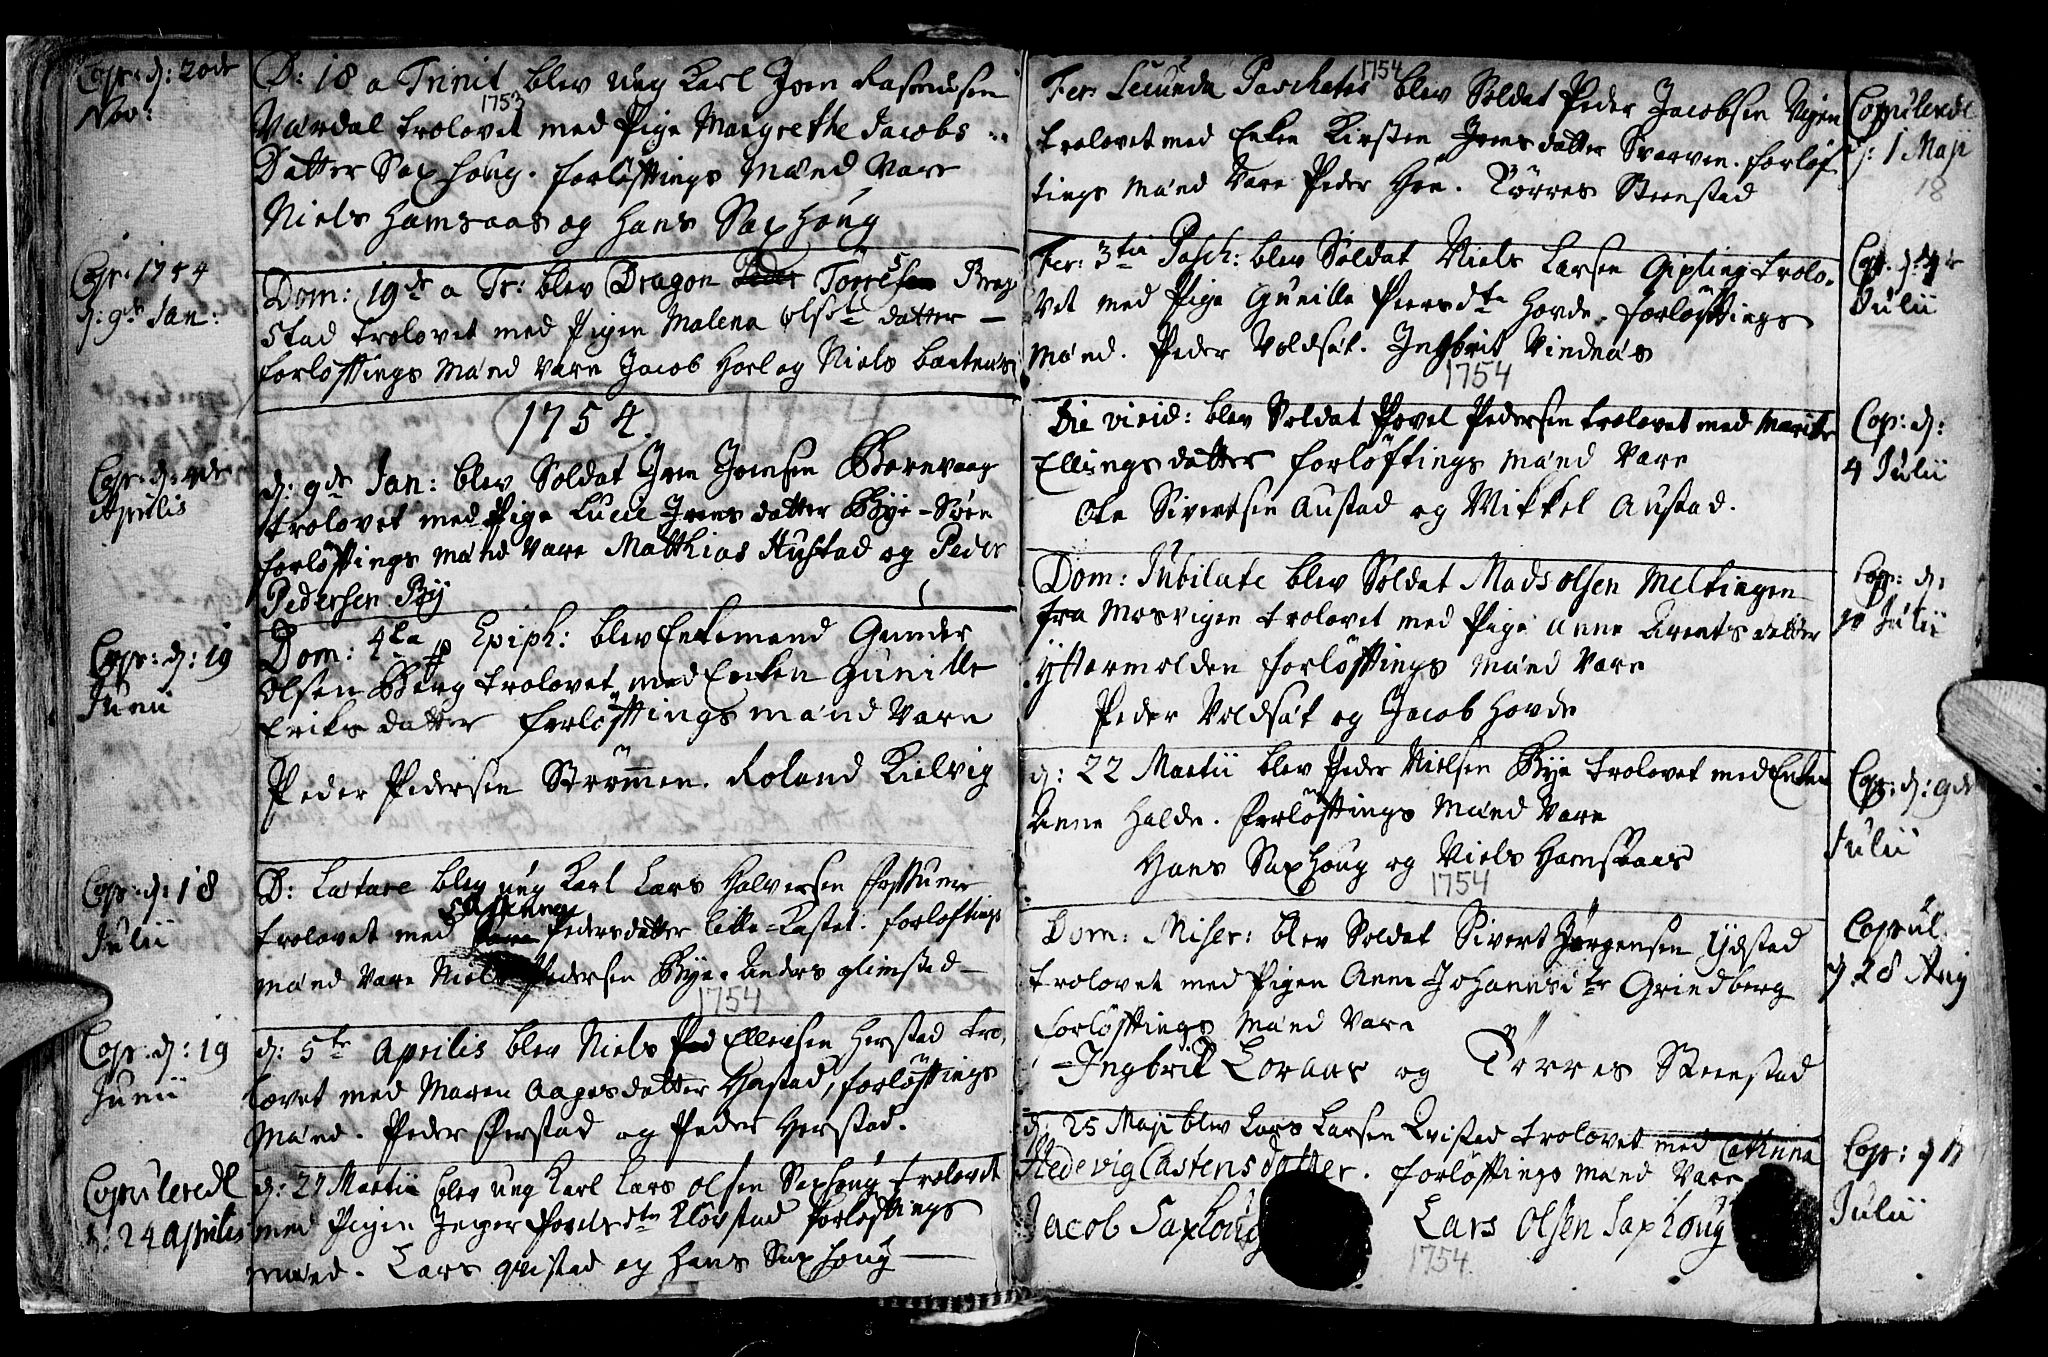 Cop: d: 20de
Nov:
D: 18 a Trinit blev ung Karl Joen Rasmusen
1753
Værdal trolovet med Pige Margrethe Jacobs
Datter Saxhoug. forløftings Mænd Vare
Niels Hamsaas og Hans Saxhoug
Cop: 1754
d: 9de Jan:
Dom: 19de a Tr: blev Dragon Peder Torresen
stad trolovet med Pigen Malena Olsdatter
forløftings Mænd vare Jacob Hoel og Niels
1754.
Cop: d:
Aprilis
d: 9de Jan: blev Soldat Jon Jonsen
trolovet med Pige Lucie Jonsdatter Bye
forløftings Mænd Vare Matthias Hustad og Peder
Pedersen By
Cop: d: 19
Junii
Dom: 4ta p Epiph: blev Enkemand Gunder
Olsen Berg trolovet med Enken Gunille
Eriksdatter forløftings mænd Vare
Peder Pedersen Strømmen. Roland Kielvig
Cop: d: 18
Julii
D: Lætare blev ung Karl Lars Halversen
trolovet med Pedersdatter forløftings
mænd Vare Niels Pedersen Bye. Anders Glimstad
1754
Cop: d: 19
Junii
d: 5te Aprilis blev Niels Ped Ellevsen Herstad tro
lovet med Maren Aagesdatter Hustad, forløftings
Mænd. Peder Perstad og Peder Herstad.
Copulerede
d: 24 Aprilis
d: 27 Martii blev ung Karl Lars Olsen Saxhoug trolovet
med Pigen Inger Povelsdtr Kløvstad forløftings
mænd. Lars Qvistad og Hans Saxhoug
1754
Fer: Secunda Paschatos blev Soldat Peder Jacobsen
trolovet med Enken Kirsten Jonsdatter Svarven. forløf
tings Mænd Vare Peder Hoe. Törres Steenstad
Copulerede
d: 1 Maji
18
Fer: 3tia Pasch: blev Soldat Niels Larsen Gipling trolo.
vet med Pige Gunille Peersdtr Hovde. forløftings
Mænd. Peder Voldsæt. Ingbrit Vindnæs
Cop: d: 4de
Julii
1754
Die virid: blev Soldat Povel Pedersen trolovet med Marite
Ellingsdatter forløftings Mænd Vare
Ole Sivertsen Austad og Mikkel Austad.
Cop: d:
4 Julii
Dom: Jubilate blev Soldat Mads Olsen Meltingen
fra Mosvigen trolovet med Pige Anne Arentsdatter
Yttermolden forløftings Mænd Vare
Peder Voldsæt og Jacob Hovde
Cop: d:
10 Julii
d: 22 Martii blev Peder Nielsen Bye trolovet med Enken
Anne Halde. forløftings Mænd Vare
Hans Saxhoug og Niels Hamsaas
Cop: d: 9de
Julii
1754
Dom: Miser: blev Soldat Sivert Jørgensen Ydstad
trolovet med Pigen Anne Johannsdtr Grindberg
forløftings Mænd Vare
Ingbrit Loraas og Törres Steenstad
Copul.
d 28 Aug
d: 25 Maji blev Lars Larsen Qvistad trolovet med Cathrina
Hedevig Castensdatter. forløftings Mænd Vare
Jacob Saxhoug Lars Olsen Saxhoug
1754.
Cop: d 11
Julii